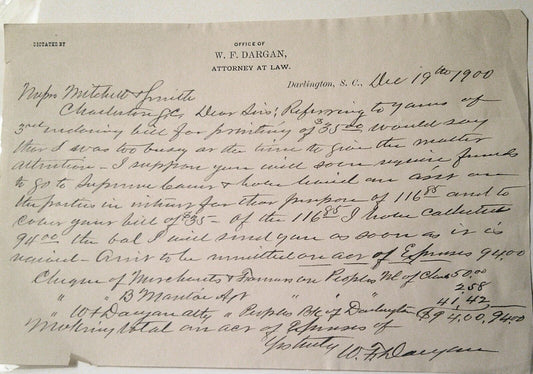 DICTATED BY
OFFICE OF
W. F. DARGAN,
ATTORNEY AT LAW.
Darlington, S. C., Dec 19th 1900
Messrs Mitchell & Smith
Charleston SC, Dear Sirs; Referring to yours of
3rd enclosing bill for printing of $35.00 would say
that I was too busy at the time to give the matter
attention - I suppose you will soon require funds
to go to Supreme Court & have laid an asst on
the parties in interest for that purpose of 116 85 and to
cover your bill of $35 - Of the 116 85 I have collected
94.00 the bal I will send you as soon as it is
raised - Amt to be remitted on act of Expenses 94.00
Cheque of Merchants & Farmers on Peoples of 50.00
" " B Agt 2.58
" " W F Dargan atty " Peoples Bk " of Darlington 41,42
$94,00, 94.00
Making total on act of Expenses of
Yrs truly W. F. Dargan